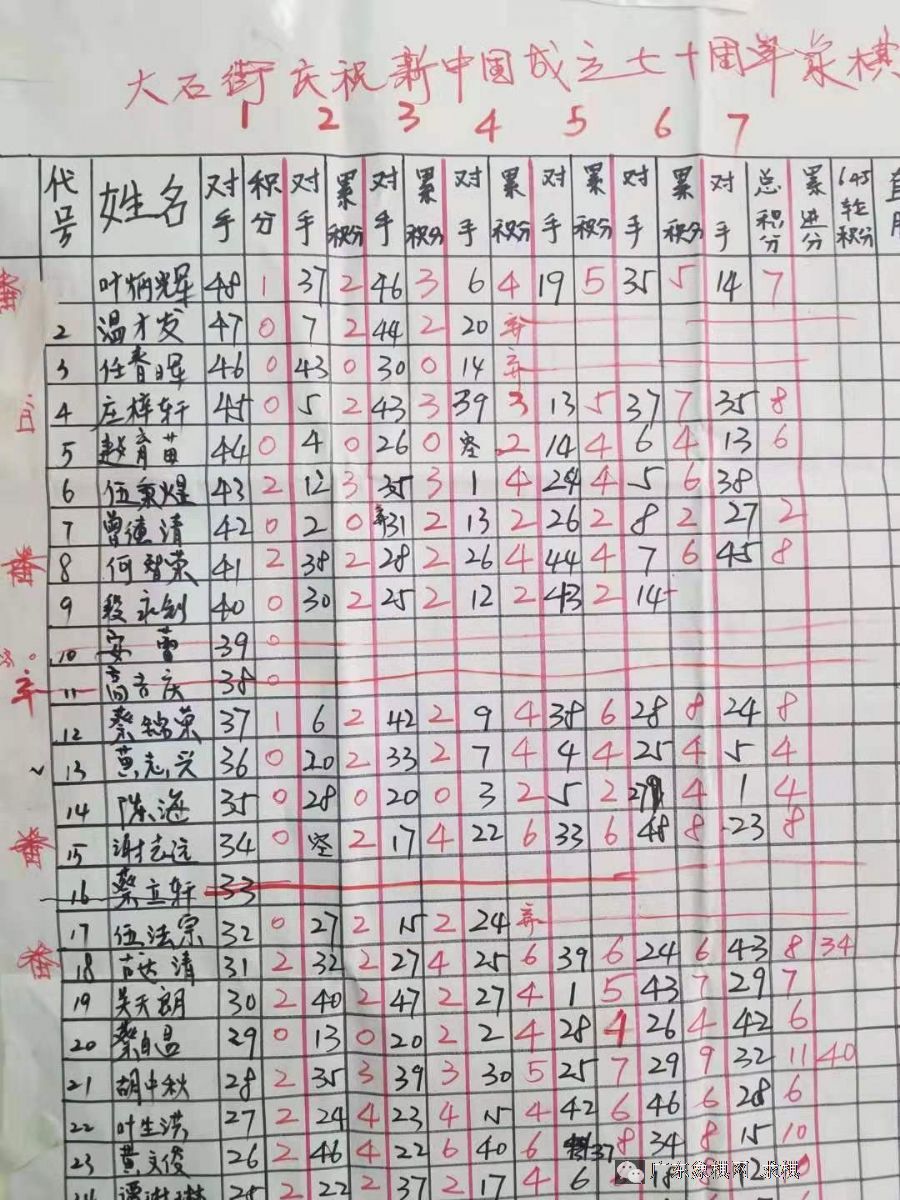 大石街庆祝新中国成立七十周年象棋
1 2 3 4 5 6 7
代号 姓名 对手 积分 对手 累积分 对手 累积分 对手 累积分 对手 累积分 对手 累积分 对手 总积分 累进分 645轮积分
叶炳光军 48 1 37 2 46 3 6 4 19 5 35 5 14 7
2 温才发 47 0 7 2 44 2 20 弃
3 任春晖 46 0 43 0 30 0 14 弃
4 庄梓轩 45 0 5 2 43 3 39 3 13 5 37 7 35 8
5 赵育苗 44 0 4 0 26 0 空 2 14 4 6 4 13 6
6 伍秉煜 43 2 12 3 35 3 1 4 24 4 5 6 38
7 曾德清 42 0 2 0 弃31 2 13 2 26 2 8 2 27 2
8 何智荣 41 2 38 2 28 2 26 4 44 4 7 6 45 8
9 段永剑 40 0 30 2 25 2 12 2 43 2 14
10 安蕾 39 0
11 高方庆 38 0
12 蔡锦荣 37 1 6 2 42 2 9 4 38 6 28 8 24 8
13 黄志兴 36 0 20 2 33 2 7 4 4 4 25 4 5 4
14 陈海 35 0 28 0 20 0 3 2 5 2 4 1 4
15 谢志远 34 0 空 2 17 4 22 6 33 6 48 8 23 8
16 蔡立轩 33
17 伍法宗 32 0 27 2 15 2 24 弃
18 范达清 31 2 32 2 27 4 25 6 39 6 24 6 43 8 34
19 吴天朗 30 2 40 2 47 2 27 4 1 5 43 7 29 7
20 蔡自温 29 0 13 0 20 2 2 4 28 4 26 4 42 6
21 胡中秋 28 2 35 3 39 3 30 5 25 7 29 9 32 11 40
22 叶生洪 27 2 24 4 23 4 15 4 42 6 46 6 28 6
23 黄文俊 26 2 46 4 22 6 40 6 37 8 34 8 15 10
24 25 2 22 2 37 2 17 4 6 18 8 12
广东象棋网·求棋